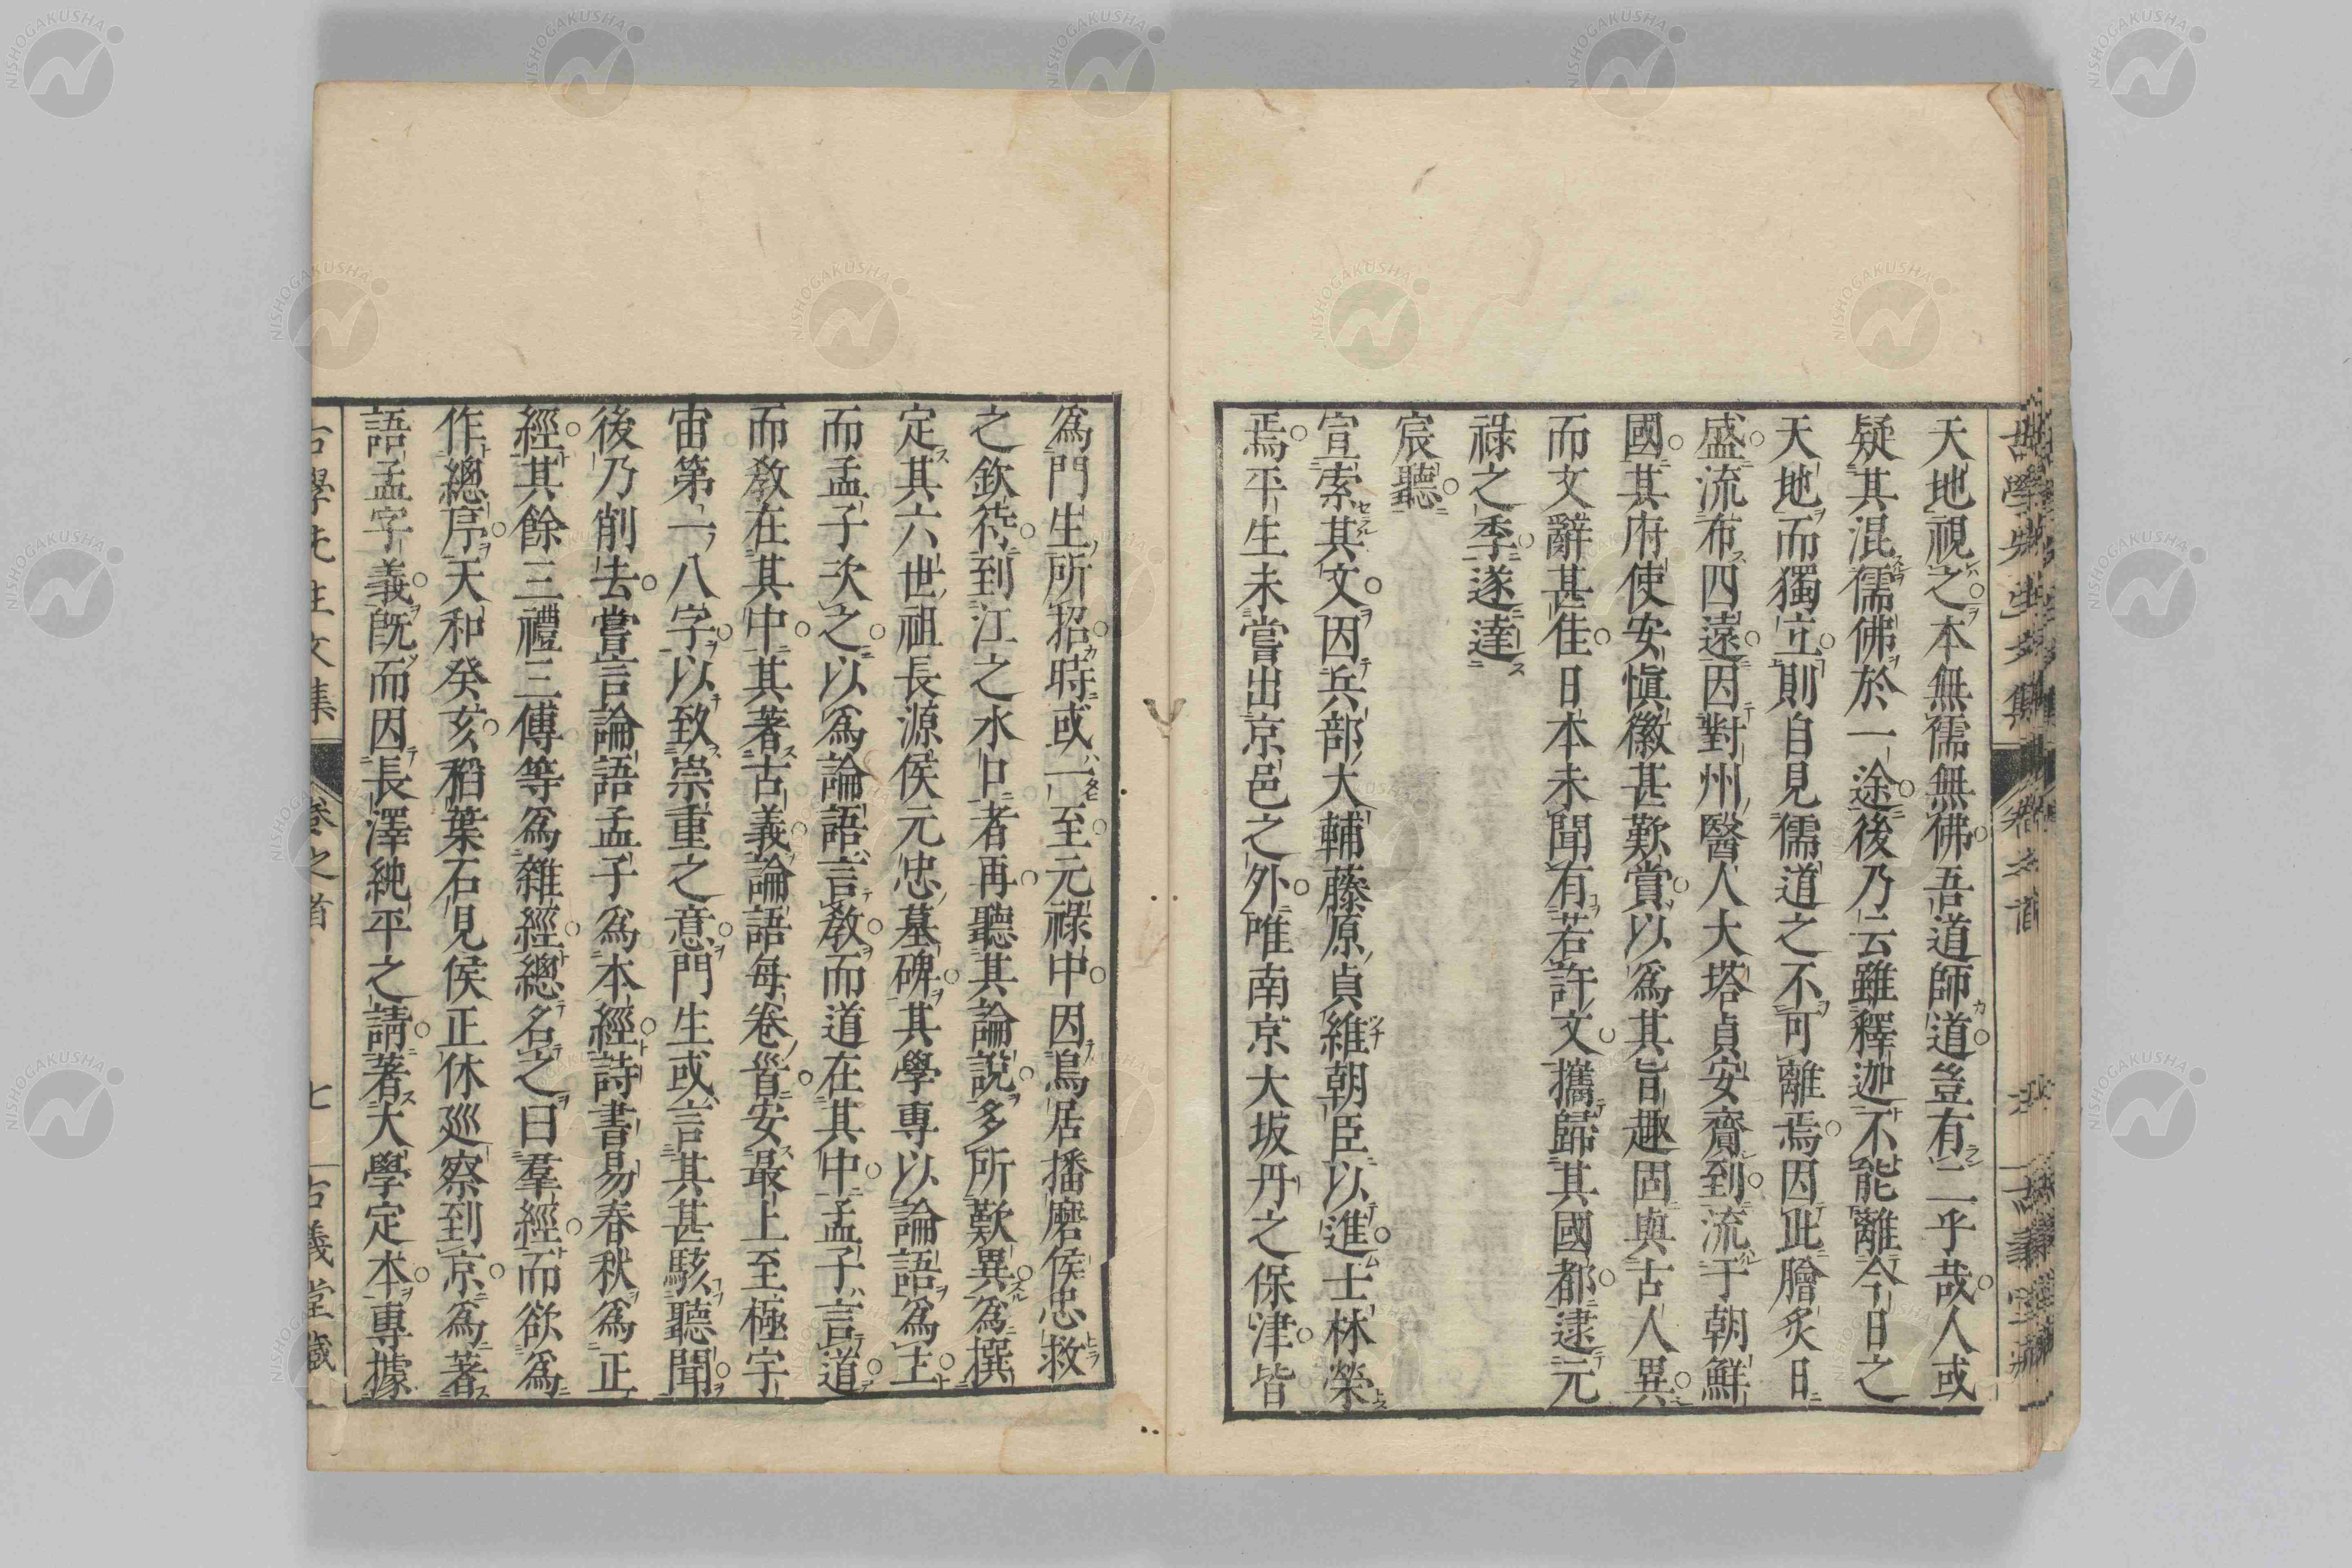 天地視之本無儒無佛吾道師道豈有二乎哉人或
疑其混儒佛於一途後乃云雖釋迦不能離今日之
天地而獨立則自見儒道之不可離焉因此膾炙日
盛流布四遠因對州醫人大塔貞安齎到流于朝鮮
國其府使安愼徽甚歎賞以爲其旨趣固與古人異
而文辭甚佳日本未聞有若許文攜歸其國都逮元
祿之季遂達
宸聽
宣索其文因兵部大輔藤原貞維朝臣以進士林榮
焉平生未嘗出京邑之外唯南京大坂丹之保津皆
爲門生所招時或一至元祿中因鳥居播磨侯忠救
之欽待到江之水口者再聽其論說多所歎異爲撰
定其六世祖長源侯元忠墓碑其學專以論語爲主
而孟子次之以爲論語言教而道在其中孟子言道
而教在其中其著古義論語每卷首安最上至極宇
宙第一八字以致崇重之意門生或言其甚駭聽聞
後乃削去嘗言論語孟子爲本經詩書易春秋爲正
經其餘三禮三傳等爲雜經總名之曰羣經而欲爲
作總序天和癸亥稻葉石見侯正休巡察到京爲著
語孟字義旣而因長澤純平之請著大學定本專據
古學先生文集 卷之首 七 古義堂藏
NISHOGAKUSHA